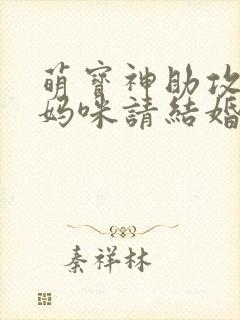 萌寶神助攻
媽咪請結婚
秦祥林